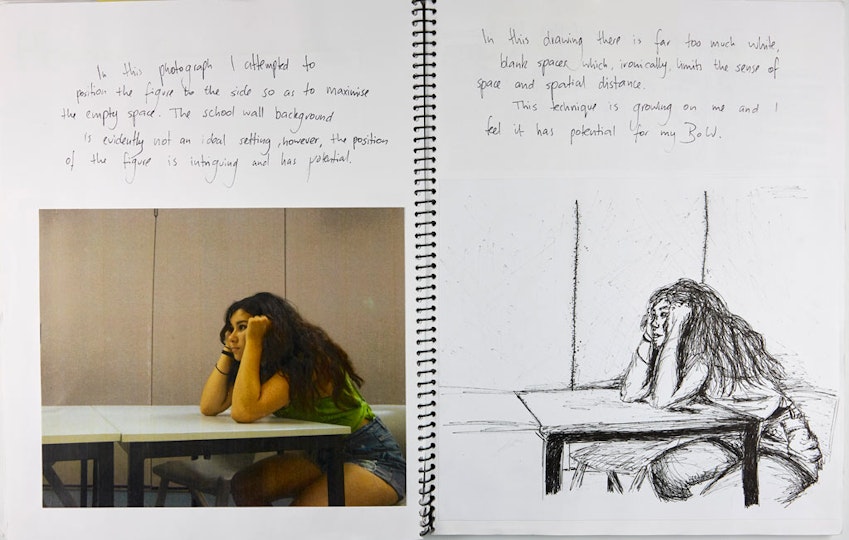 In this photograph I attempted to
position the figure to the side so as to maximise
the empty space. The school wall background
is evidently not an ideal setting, however, the position
of the figure is intriguing and has potential.
In this drawing there is far too much white,
blank spaces which, ironically, limits the sense of
space and spatial distance.
This technique is growing on me and I
feel it has potential for my BoW.